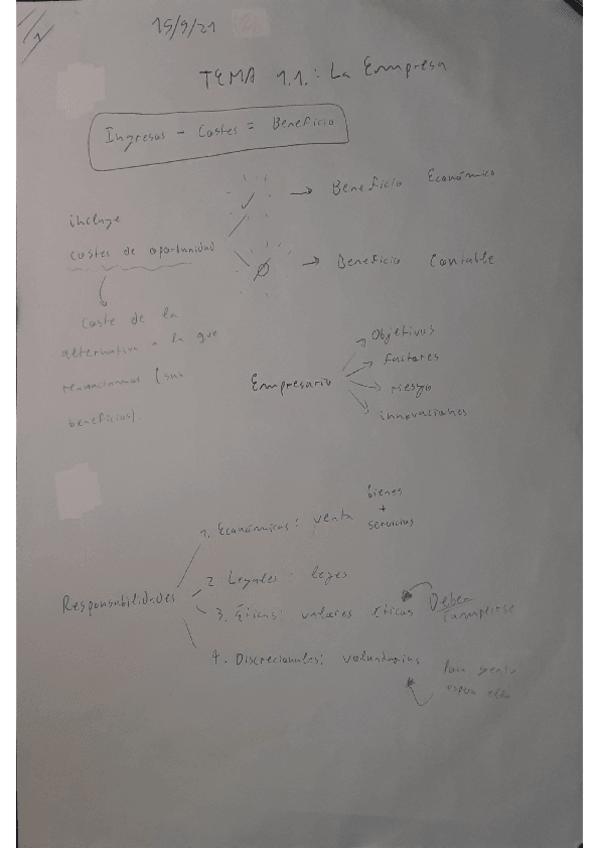 1
15/9/21
TEMA 1.1.: La Empresa
Ingresos - Costes = Beneficio
incluye
costes de oportunidad
✓ → Beneficio Económico
∅ → Beneficio Contable
Coste de la
alternativa a la que
renunciamos (sus
beneficios).
Empresario
Objetivos
factores
riesgo
innovaciones
Responsabilidades
1. Económicas: venta bienes
+
servicios
2 Legales: leyes
3. Éticas: valores éticos Deben
cumplirse
4. Discrecionales: voluntarias